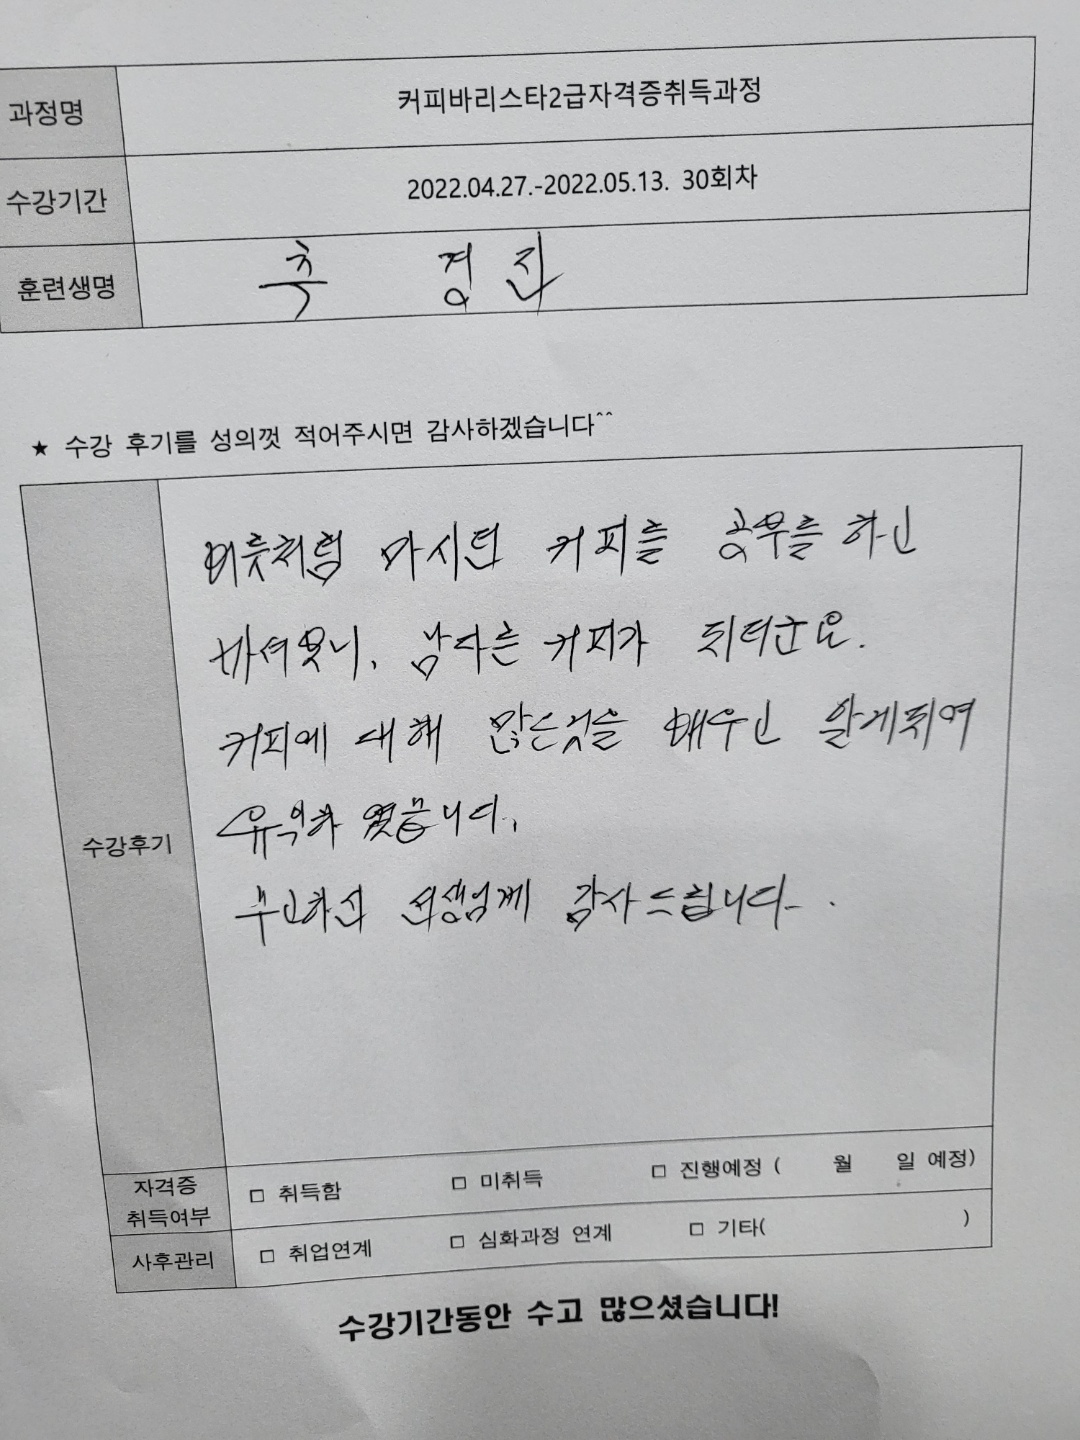 과정명 커피바리스타2급자격증취득과정
수강기간 2022.04.27.-2022.05.13. 30회차
훈련생명 추 경진
★ 수강 후기를 성의껏 적어주시면 감사하겠습니다^^
버릇처럼 마시던 커피를 공부를 하고
바셔보니, 남다른 커피가 되더군요.
커피에 대해 많은것을 배우고 알게되여
유익하였습니다.
수강후기
수고하신 선생님께 감사드립니다.
자격증 취득여부 □ 취득함 □ 미취득 □ 진행예정 ( 월 일 예정)
사후관리 □ 취업연계 □ 심화과정 연계 □ 기타( )
수강기간동안 수고 많으셨습니다!